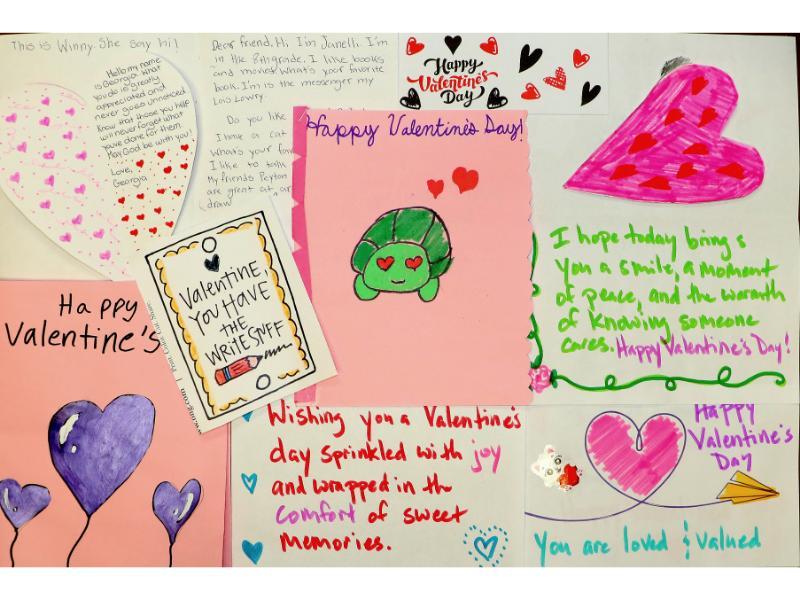 This is Winny. She say hi!
Hello my name
is Georgia what
you do is greatly
appreciated and
never goes unnoticed
Know that those you help
will never forget what
you've done for them.
May God be with you!
Love,
Georgia
Dear friend, Hi, I'm Janelli. I'm
in the 8th grade. I like books
and movies. What's your favorite
book. I'm is the messenger my
Lois Lowry.
Do you like
I have a cat
What's your fav
I like to talk
My friends Peyton
are great at ar
draw
Happy
Valentine's
Day
Happy Valentine's Day!
I hope today brings
you a smile, a moment
of peace, and the warmth
of knowing someone
cares. Happy Valentine's Day!
Valentine
You Have
the
Write Stuff
Happy
Valentine's
Wishing you a Valentine's
day sprinkled with joy
and wrapped in the
comfort of sweet
memories.
Happy
Valentine's
Day
You are loved & valued